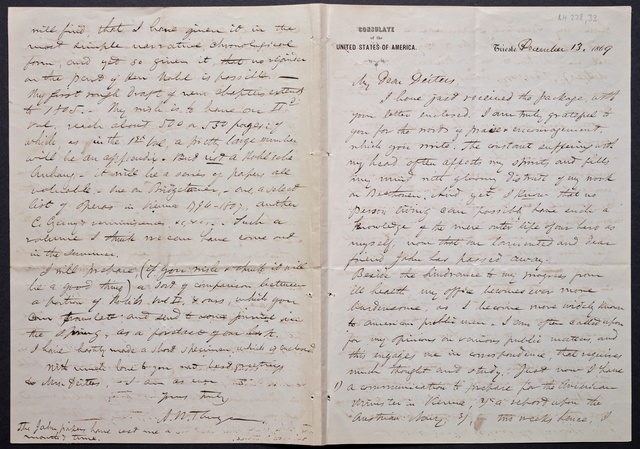 CONSULATE
of the
UNITED STATES OF AMERICA.
Trieste December 13, 1869
My Dear Deiters
I have just received the package, with
your letter enclosed. I am truly grateful to
you for the words of praise & encouragement
which you write. The constant suffering with
my head often affects my spirits and fills
my mind with gloomy distrust of my work
on Beethoven. And yet, I know that no
person living can possibly have such a
knowledge of the mere outer life of our hero as
myself now that our lamented and dear
friend Jahn has passed away.
Beside the hindrance to my progress from
ill health my office becomes ever more
burdensome, as I become more widely known
to American public men. I am often called upon
for my opinions on various public matters and
this engages me in correspondence, that requires
much thought and study. Just now I have
1) a communication to prepare for the American
Minister in Vienna, a report upon the
Austrian Navy, 3/ this weeks house, I
will find, that I have given it in the
most simple narrative chronological
form, and yet so given it that no rejoinder
on the part of Herr Nohl is possible. —
My first rough draft of new chapters extends
to 1805. — My wish is to have in IId
vol. reach about 500 or 550 pages; of
which, as in the 1st Vol, a pretty large number
will be an appendix. But not a Nohlsche
Anhang: it will be a series of papers all
valuable, one on Bridgetower, one a select
list of operas in Vienna 1796-1807, another
C. Czerny's reminiscences &c. Such a
volume I think we can have come out
in the summer.
I will prepare, (if you wish & think it will
be a good thing) a sort of comparison between
a portion of Nohl's Vol. II, & ours, which you
can translate and send to some journal in
the Spring, as a
I have hastily made a short specimen, which is enclosed
With much love to you and best greetings
to Mrs. Deiters, I am as ever
Yours truly
A. W. Thayer.
The Jahn papers have cost me a
month's time.